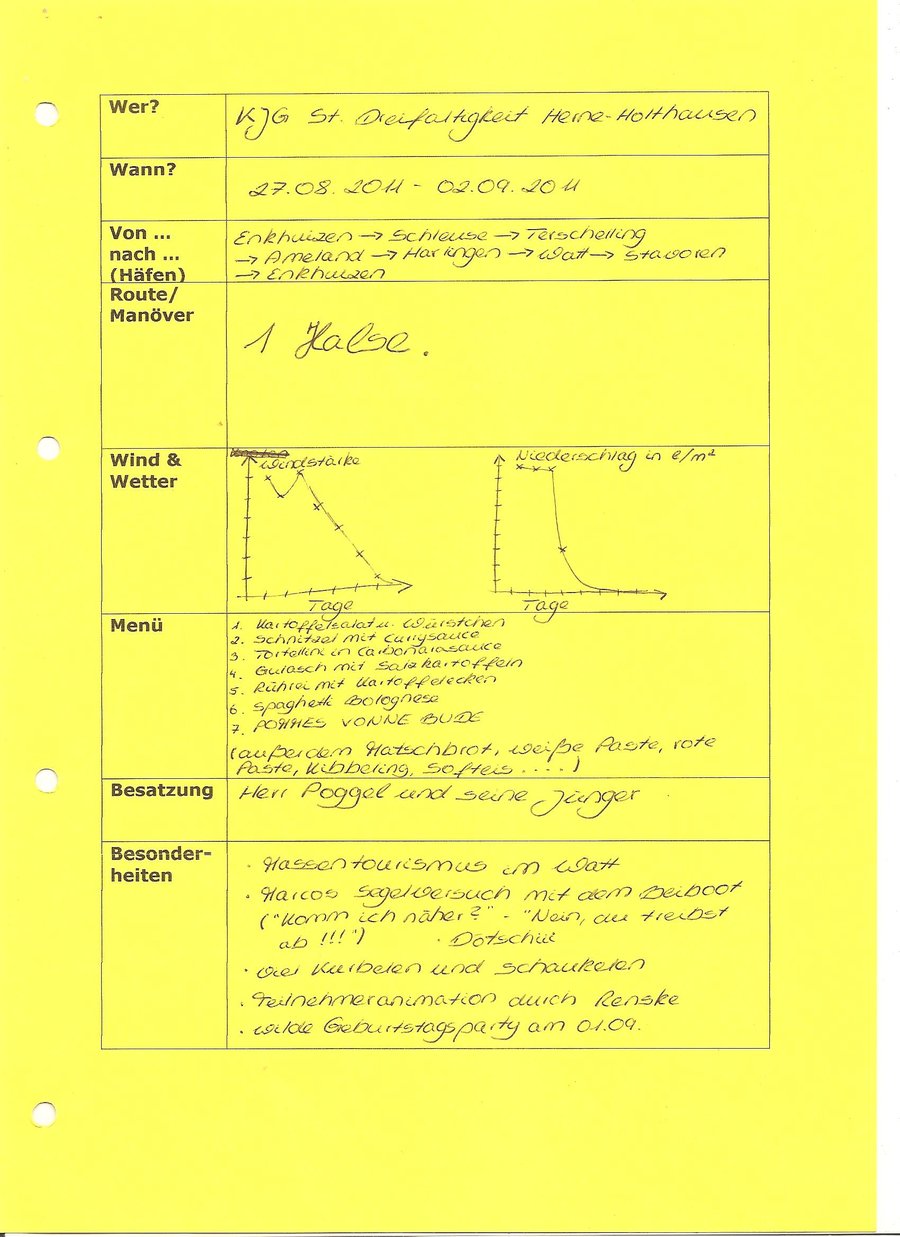 Wer?
KJG St. Dreifaltigkeit Herne-Holthausen
Wann?
27.08.2011 - 02.09.2011
Von ...
nach ...
(Häfen)
Enkhuizen → Schleuse → Terschelling
→ Ameland → Harlingen → Watt → Stavoren
→ Enkhuizen
Route/
Manöver
1 Halse.
Wind &
Wetter
Windstärke
Tage
Niederschlag in l/m²
Tage
Menü
1. Kartoffelsalat u. Würstchen
2. Schnitzel mit Currysauce
3. Tortellini in Carbonarasauce
4. Gulasch mit Salzkartoffeln
5. Rührei mit Kartoffelecken
6. Spaghetti Bolognese
7. POMMES VONNE BUDE
(außerdem Matschbrot, weiße Paste, rote
Paste, Kibbeling, Softeis ....)
Besatzung
Herr Poggel und seine Jünger
Besonder-
heiten
· Massentourismus im Watt
· Marcos Segelversuch mit dem Beiboot
("Komm ich näher?" - "Nein, du treibst
ab !!!") · Dotschii
· viel Kurbelen und schaukelen
· Teilnehmeranimation durch Renske
· wilde Geburtstagsparty am 01.09.